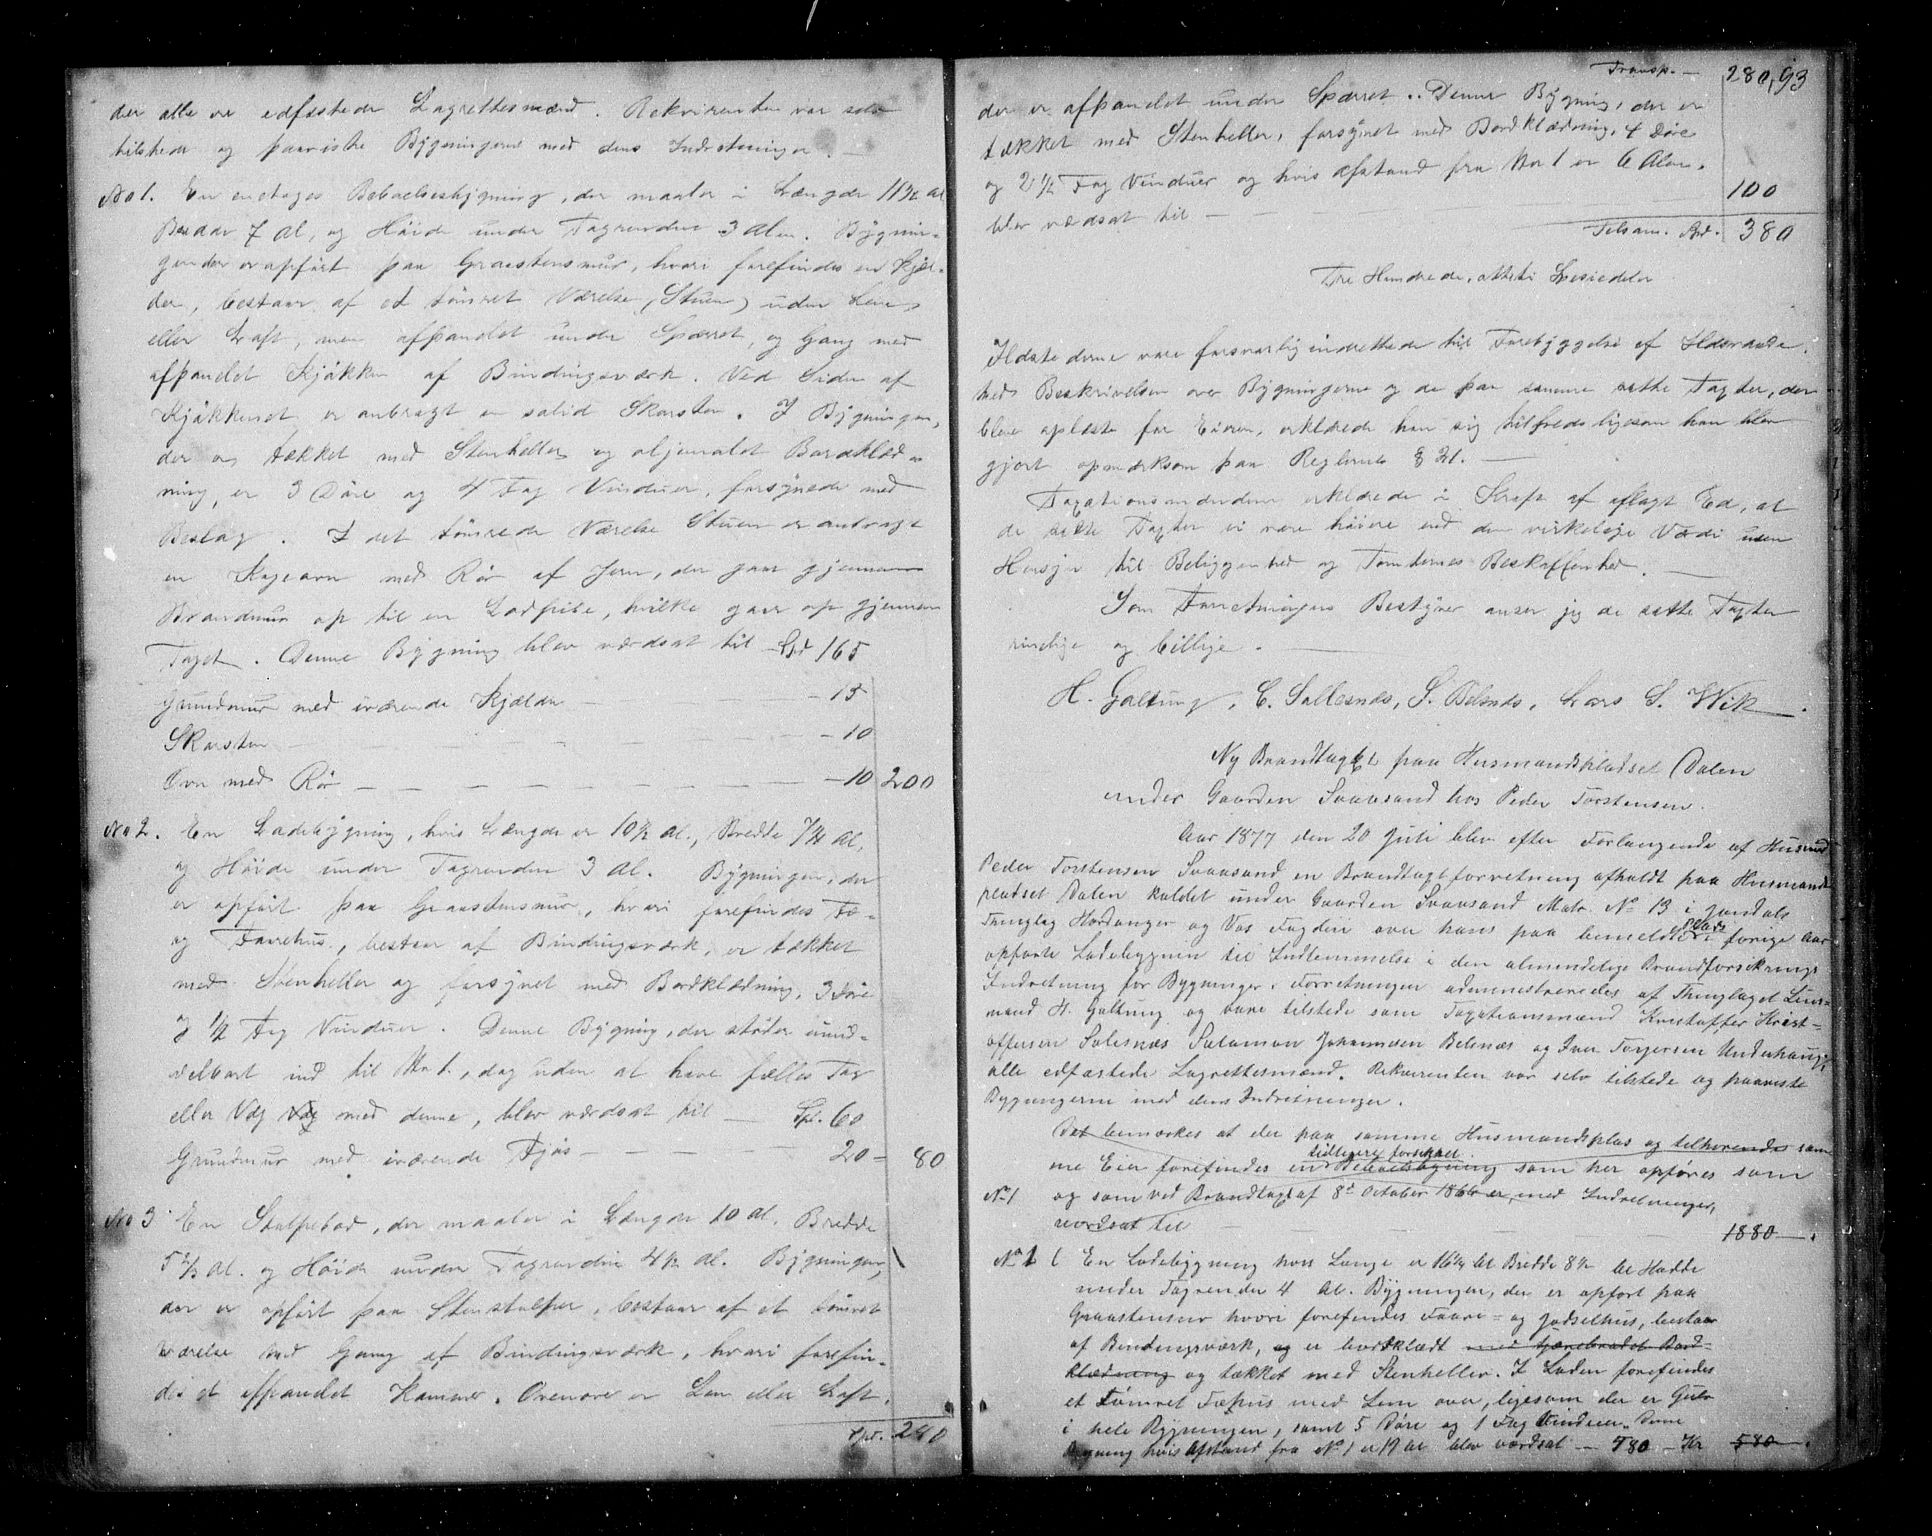 der alle ere edfæstede Lagrettesmænd. Rekvirenten var selv
tilstede og paaviste Bygningerne med dens Indretninger. —
No 1. En enetages Beboelsesbygning, der maaler i Længde 11½ Al
Bredde 7 Al, og Høide under Tagrenden 3 Alen. Bygnin-
gen der er opført paa Graastensmur, hvori forefindes en Kjæl-
der, bestaar af et tømret Værelse (Stuen) uden Lem
eller Loft, men afpanelet under Spærret, og Gang med
afpanelet Kjøkken af Bindingsværk. Ved Siden af
Kjøkkenet er anbragt en solid Skorsten. I Bygningen,
der er tækket med Stenheller og oljemalet Bordklæd-
ning, er 3 Døre og 4 Fag Vinduer, forsynede med
Beslag. I det tømrede Værelse Stuen er anbragt
en Kogeovn med Rør af Jern, der gaar gjennem
Brandmur op til en Lodpibe, hvilke gaar op gjennem
Taget. Denne Bygning blev værdsat til Spd 165
Grundmur med iværende Kjælder — — - 15
Skorsten — — — - 10
Ovn med Rør — — — — - 10 200
No 2. En Ladebygning, hvis Længde er 10½ Al., Bredde 7¼ Al,
og Høide under Tagrenden 3 Al. Bygningen, der
er opført paa Graastensmur, hvori forefindes Fæ-
og Faarehus, bestaar af Bindingsværk, er tækket
med Stenheller og forsynet med Bordklædning, 3 Døre
og ½ Fag Vinduer. Denne Bygning, der støder umid-
delbart ind til No 1., dog uden at have fælles Tag
eller Væg Væg med denne, blev værdsat til — Spd. 60
Grundmur med iværende Fjøs — — — 20 = 80
No 3 En Stolpebod, der maaler i Længde 10 Al. Bredde
5⅔ Al. og Høide under Tagrenden 4½ Al. Bygningen,
der er opført paa Stenstolper, bestaar af et tømret
Værelse med Gang af Bindingsværk, hvori forefin-
des et afpanelet Kammer. Ovenover er Lem eller Loft,
Spd. 280
Transp. — 280, 93
der er afpanelet under Spærret. Denne Bygning, der er
tækket med Stenheller, forsynet med Bordklædning, 4 Døre
og 2½ Fag Vinduer og hvis Afstand fra No 1 er 6 Alen.
blev værdsat til — — — 100
Tilsam. Spd. 380
Tre Hundrede, otteti Speciedaler
Ildstederne vare forsvarlig indrettede til Forebyggelse af Ildsvaade.
Med Beskrivelsen over Bygningerne og de paa samme satte Taxter, der
bleve oplæste for Eieren, erklærede han sig tilfreds ligesom han blev
gjort opmærksom paa Reglernes § 21. —
Taxationsmændene erklærede i Kraft af aflagt Ed, at
de satte Taxter ei vare høiere end den virkelige Værdi uden
Hensyn til Beliggenhed og Tomternes Beskaffenhed. —
Som Forretningens Bestyrer anser jeg de satte Taxter
rimelige og billige. —
H. Galtung, C. Sallesnæs, S. Belsnæs, Lars S. Wik
Ny Brandtaxt paa Husmandspladset Dalen
under Gaarden Svaasand hos Peder Torstensen.
Aar 1877 den 20 Juli blev efter Forlangende af Husmd
Peder Torstensen Svaasand en Brandtaxtforretning afholdt paa Husmands
pladset Dalen kaldet under Gaarden Svaasand Matr. No 13 i Jondals
Thinglag Hardanger og Vos Fogderi over hans paa bemeldte Plads i forige Aar
opførte Ladebygning til Indlemmelse i den almindelige Brandforsikrings
Indretning for Bygninger. Forretningen administreredes af Thinglaget Lens-
mand H. Galtung og vare tilstede som Taxationsmænd Kristoffer Krist-
offersen Solesnæs Salamon Johannesen Belsnæs og Iver Torgersen Underhaug,
alle edfæstede Lagrettesmænd. Rekvirenten var selv tilstede og paaviste
Bygningerne med dens Indretninger.
Det bemærkes at der paa samme Husmandsplas og tilhørendes sam
tidligere forsikret
me Eier forefindes en Beboelsbygning som her opføres som
No 1 og som ved Brandtaxt af 8d October 1866 er, med Indretninger,
værdsat til — — — 1880 —.
No 1 En Ladebygning hvis Længe er 16¼ Al Bredde 8½ Al Hødde
under Tagrender 4 Al. Bygningen, der er opført paa
Graastensmur hvori forefindes Faare- og Jødselhus, bestaar
af Bindingsværk, og er bordklædt med tjærebredet Bord-
klædning og tækket med Stenheller. I Laden forefindes
et Tømret Fæhus med Lem over, ligesom der er Gulv
i hele Bygningen, samt 5 Døre og 1 Fag Vinduer. Denne
Bygning hvis Afstand fra No 1 er 19 Al blev værdsat — 580 — Kr 580 —.